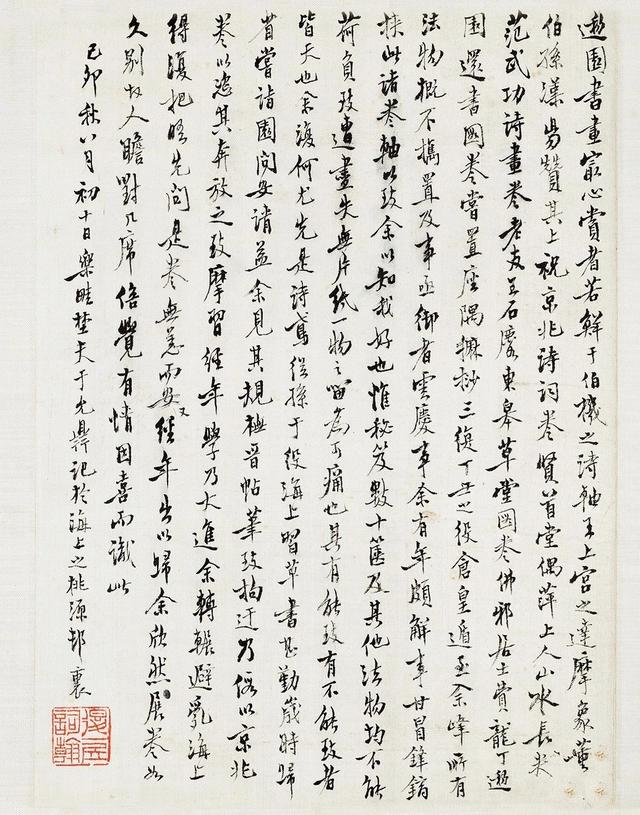 遯園書畫最心賞者若鮮于伯機之詩軸王上宮之達摩象董
伯孫漢昜贊其上祝京兆詩詞卷賢首堂偶萍上人山水長卷
范武功詩畫卷老友王石廔東皋草堂圖卷佛邪居士賞龍丁遯
園還書圖卷嘗置座隅摩挲三復丁丑之役倉皇遁亟余峰所有
法物概不攜置及事亟御者雲慶事余有年頗解事甘冒鋒鏑
挾此諸卷軸以致余以知我好也惟秘笈數十篋及其他法物均不能
荷負致遭盡失無片紙一物之留為可痛也其有能致有不能致者
皆天也余復何尤先是詩鳶從孫于役海上習草書甚勤歲時歸
省嘗詣園問安請益余見其規橅晉帖筆致拘迂乃假以京兆
卷以恣其奔放之致摩習經年學乃大進余轉輾避亂海上
得復把晤先問是卷無恙而安又經年出以歸余欣然展卷如
久別故人瞻對几席倍覺有情因喜而識此
己卯秋八月初十日樂畦埜夫于允鼎記於海上之桃源邨裏